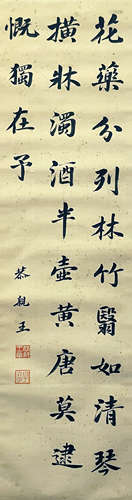 花藥分列林竹翳如清琴
橫牀濁酒半壺黃唐莫逮
慨獨在予
恭親王